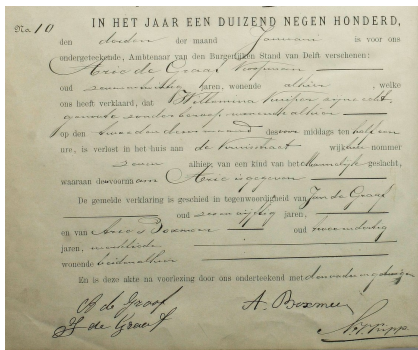 No. 10
IN HET JAAR EEN DUIZEND NEGEN HONDERD,
den derden der maand Januari is voor ons
ondergeteekende, Ambtenaar van den Burgerlijken Stand van Delft verschenen:
Arie de Graaf koopman
oud jaren, wonende alhier, welke
ons heeft verklaard, dat Willemina zijne echt-
genoote zonder beroep wonende alhier
op den tweeden dezer maand des voor middags ten half een
ure, is verlost in het huis aan de wijk nommer
zeven alhier, van een kind van het Mannelijk geslacht,
waaraan de voornaam Arie is gegeven
De gemelde verklaring is geschied in tegenwoordigheid van Jan de Graaf
oud jaren,
en van Arie Boxmeer oud
jaren,
wonende beiden alhier
En is deze akte na voorlezing door ons onderteekend met den vader en getuigen
de Graaf A. Boxmeer
J de Graaf